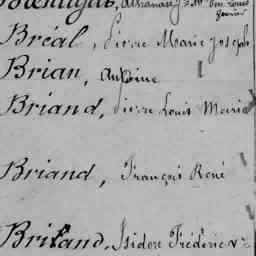 Bréal, Pierre Marie Joseph
Brian, Antoine
Briand, Pierre Louis Marie
Briand, François René
Briand, Isidore Frédéric